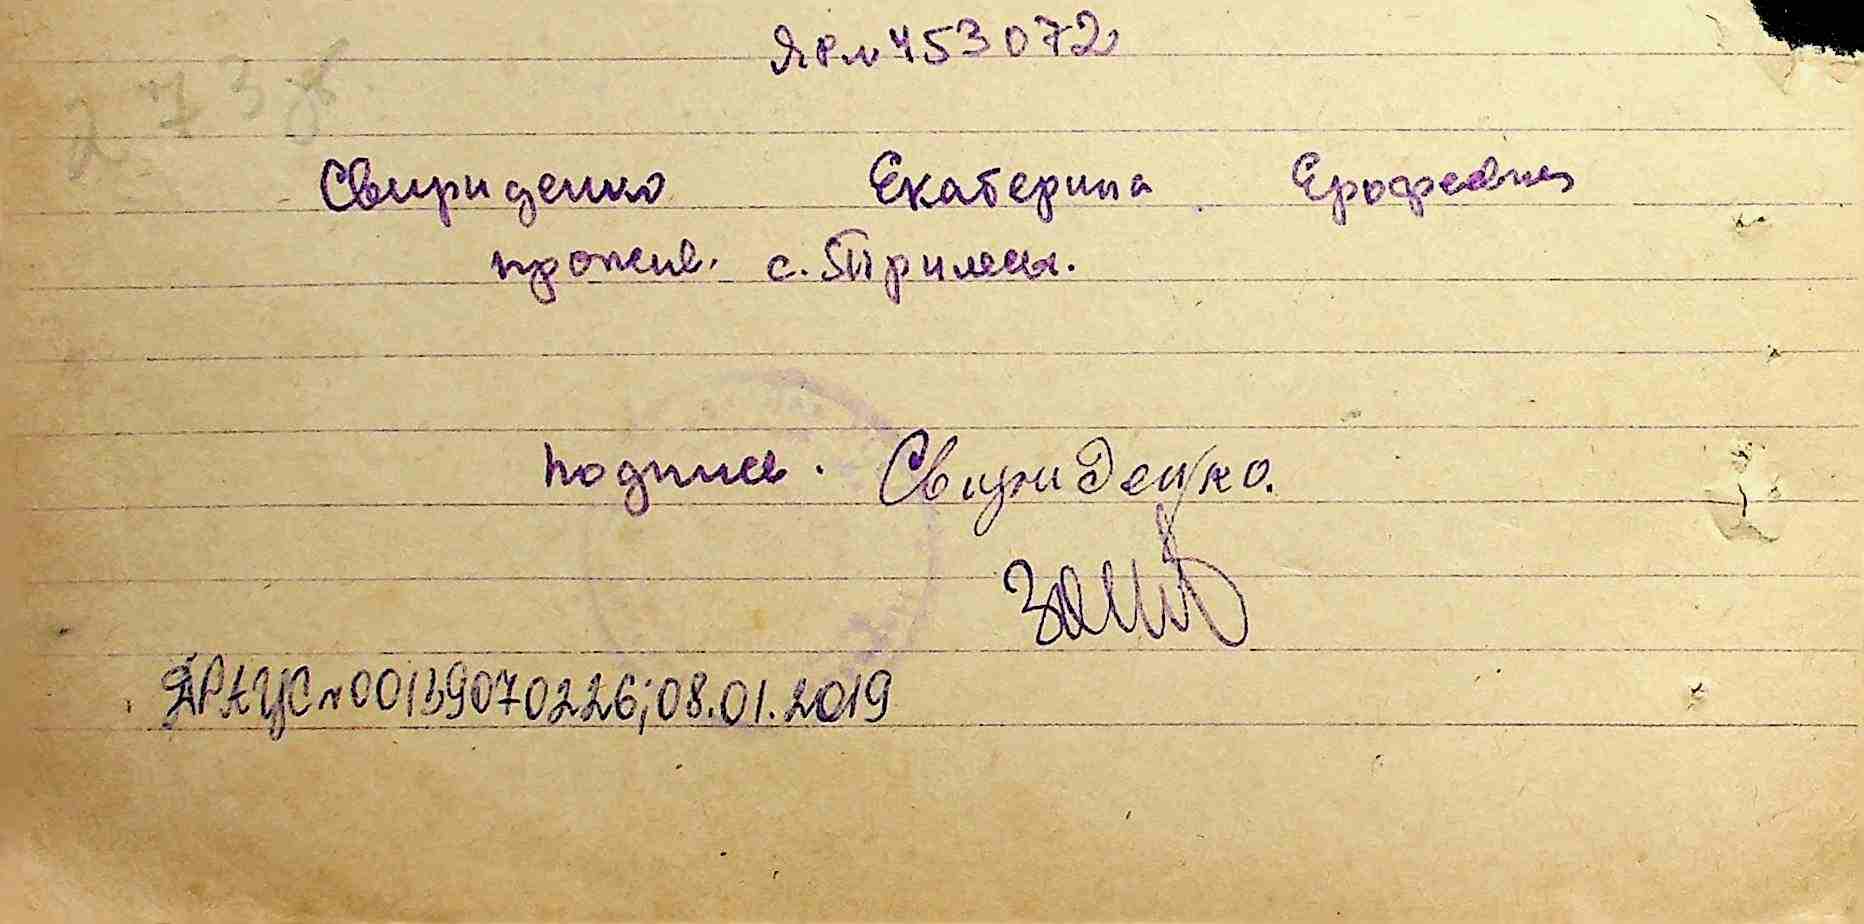 ЯР № 453072
273 об.
Свириденко Екатерина Ерофеевна
прожив. с. Прилесы.
подпись. Свириденко.
ДРАЦС №00139070226; 08.01.2019